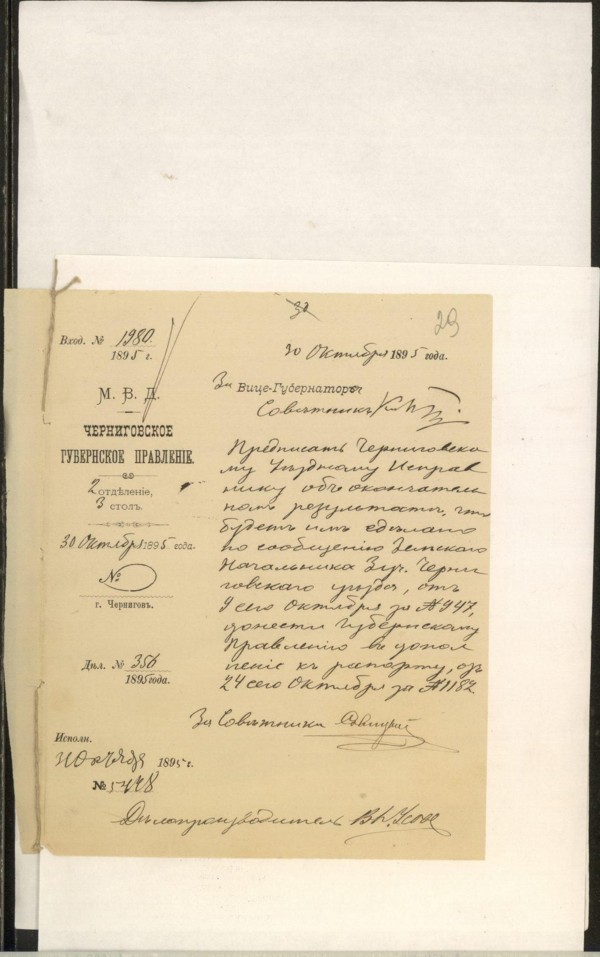 29
Вход. № 1980.
1895 г.
М. В. Д.
ЧЕРНИГОВСКОЕ
ГУБЕРНСКОЕ ПРАВЛЕНІЕ.
2 отдѣленіе,
3 столъ.
30 Октября 1895 года.
№
г. Черниговъ.
Дѣл. № 356
1895 года.
Исполн.
1895 г.
№ 5448
30 Октября 1895 года.
За Вице-Губернаторъ
Совѣтникъ
Предписать Черниговско
му Уѣздному Исправ
нику объ окончатель
номъ результатѣ, что
будетъ имъ сдѣлано
по сообщенію Земскаго
Начальника 3 уч. Черни
говскаго уѣзда, отъ
9 сего Октября за № 947,
донести Губернскому
Правленію въ допол
неніе къ рапорту, отъ
24 сего Октября за № 1182
За Совѣтника
Дѣлопроизводитель